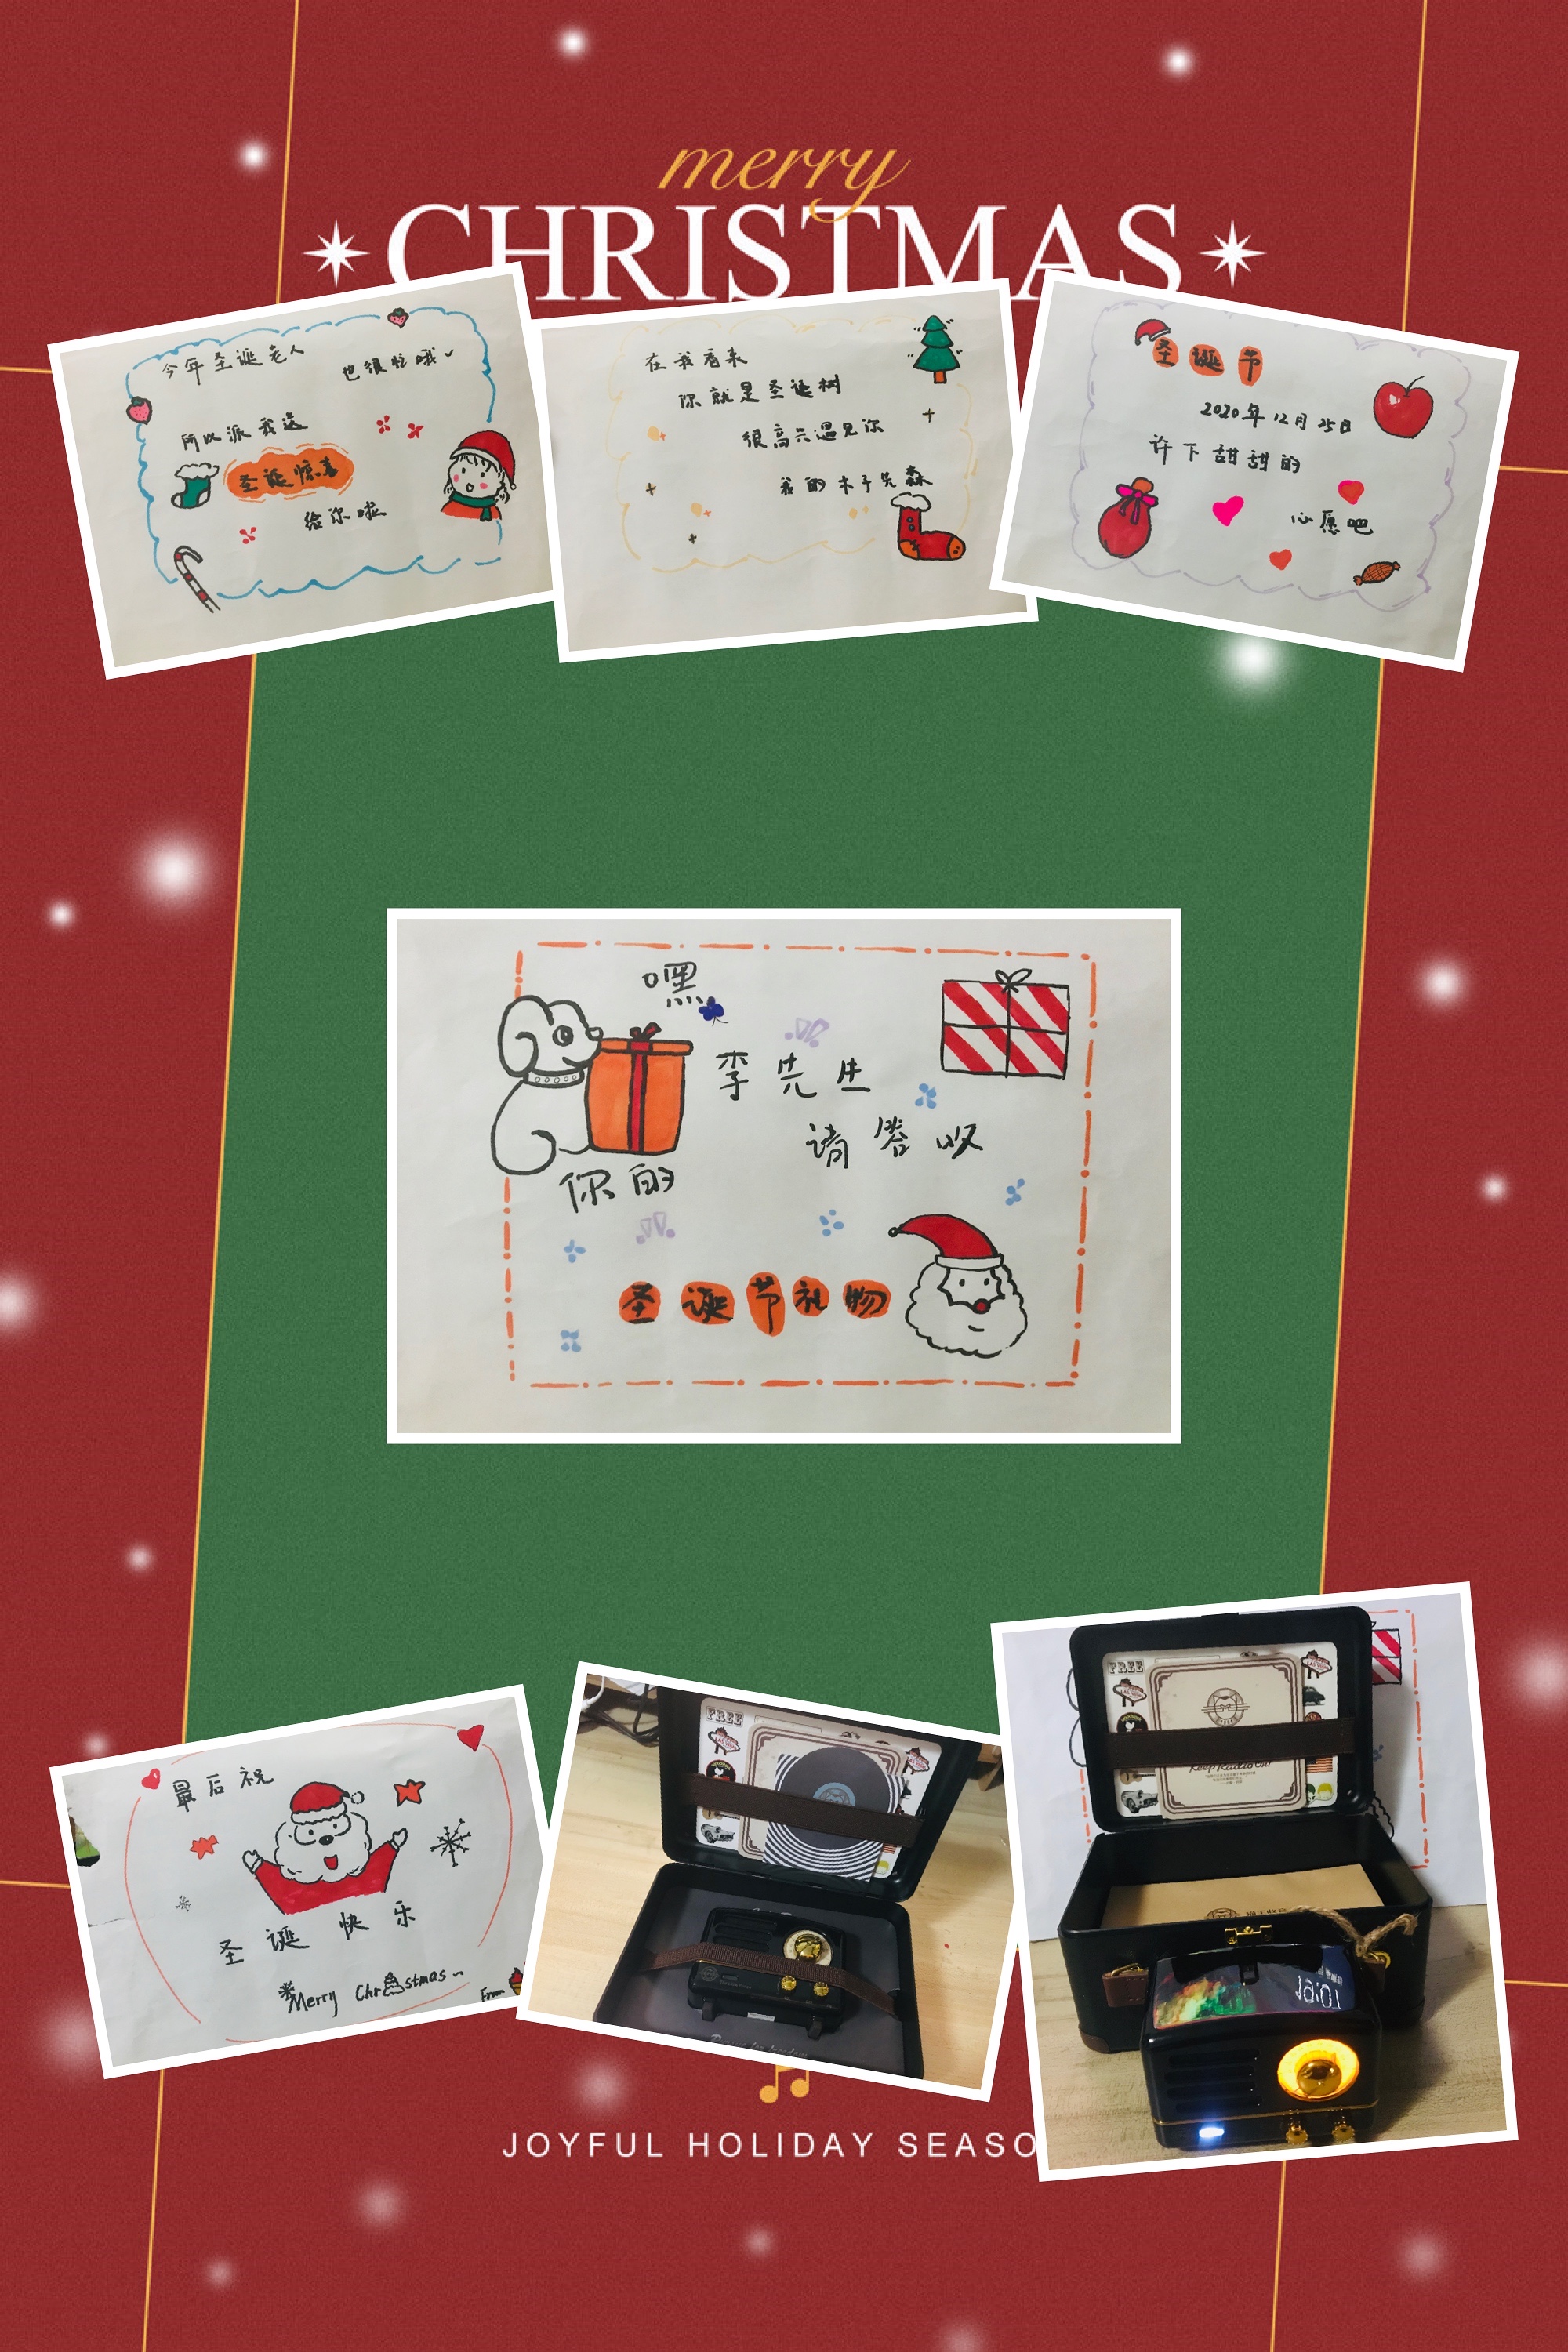 merry
CHRISTMAS
今年圣诞老人
也很忙哦~
所以派我送
圣诞惊喜
给你啦
在我看来
你就是圣诞树
很高兴遇见你
我的木子先森
圣诞节
2020年12月25日
许下甜甜的
心愿吧
嘿
李先生
请答收
你的
圣诞节礼物
最后祝
圣诞快乐
Merry Christmas~
From
FREE
FREE
Keep Radio On!
JOYFUL HOLIDAY SEASO